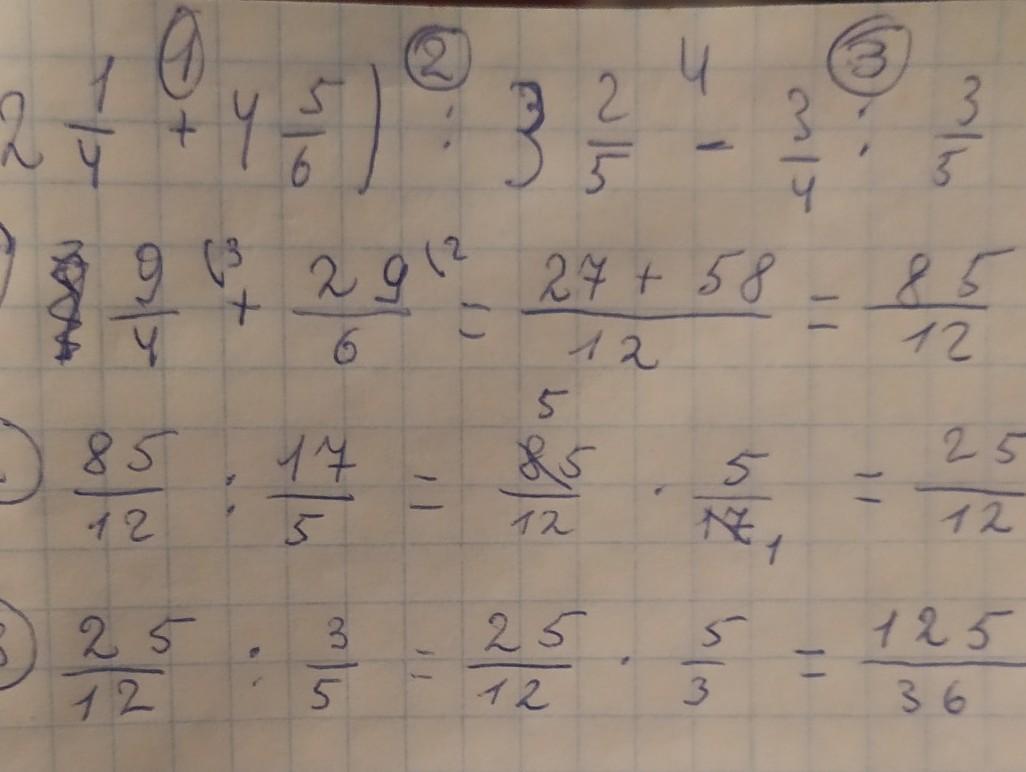 ① ② 4 ③
2 1/4 + 4 5/6) : 3 2/5 - 3/4 : 3/5
) 9/4 (3 + 29/6 (2 = (27 + 58)/12 = 85/12
) 85/12 : 17/5 = 85/12 5 · 5/17 1 = 25/12
3) 25/12 : 3/5 = 25/12 · 5/3 = 125/36